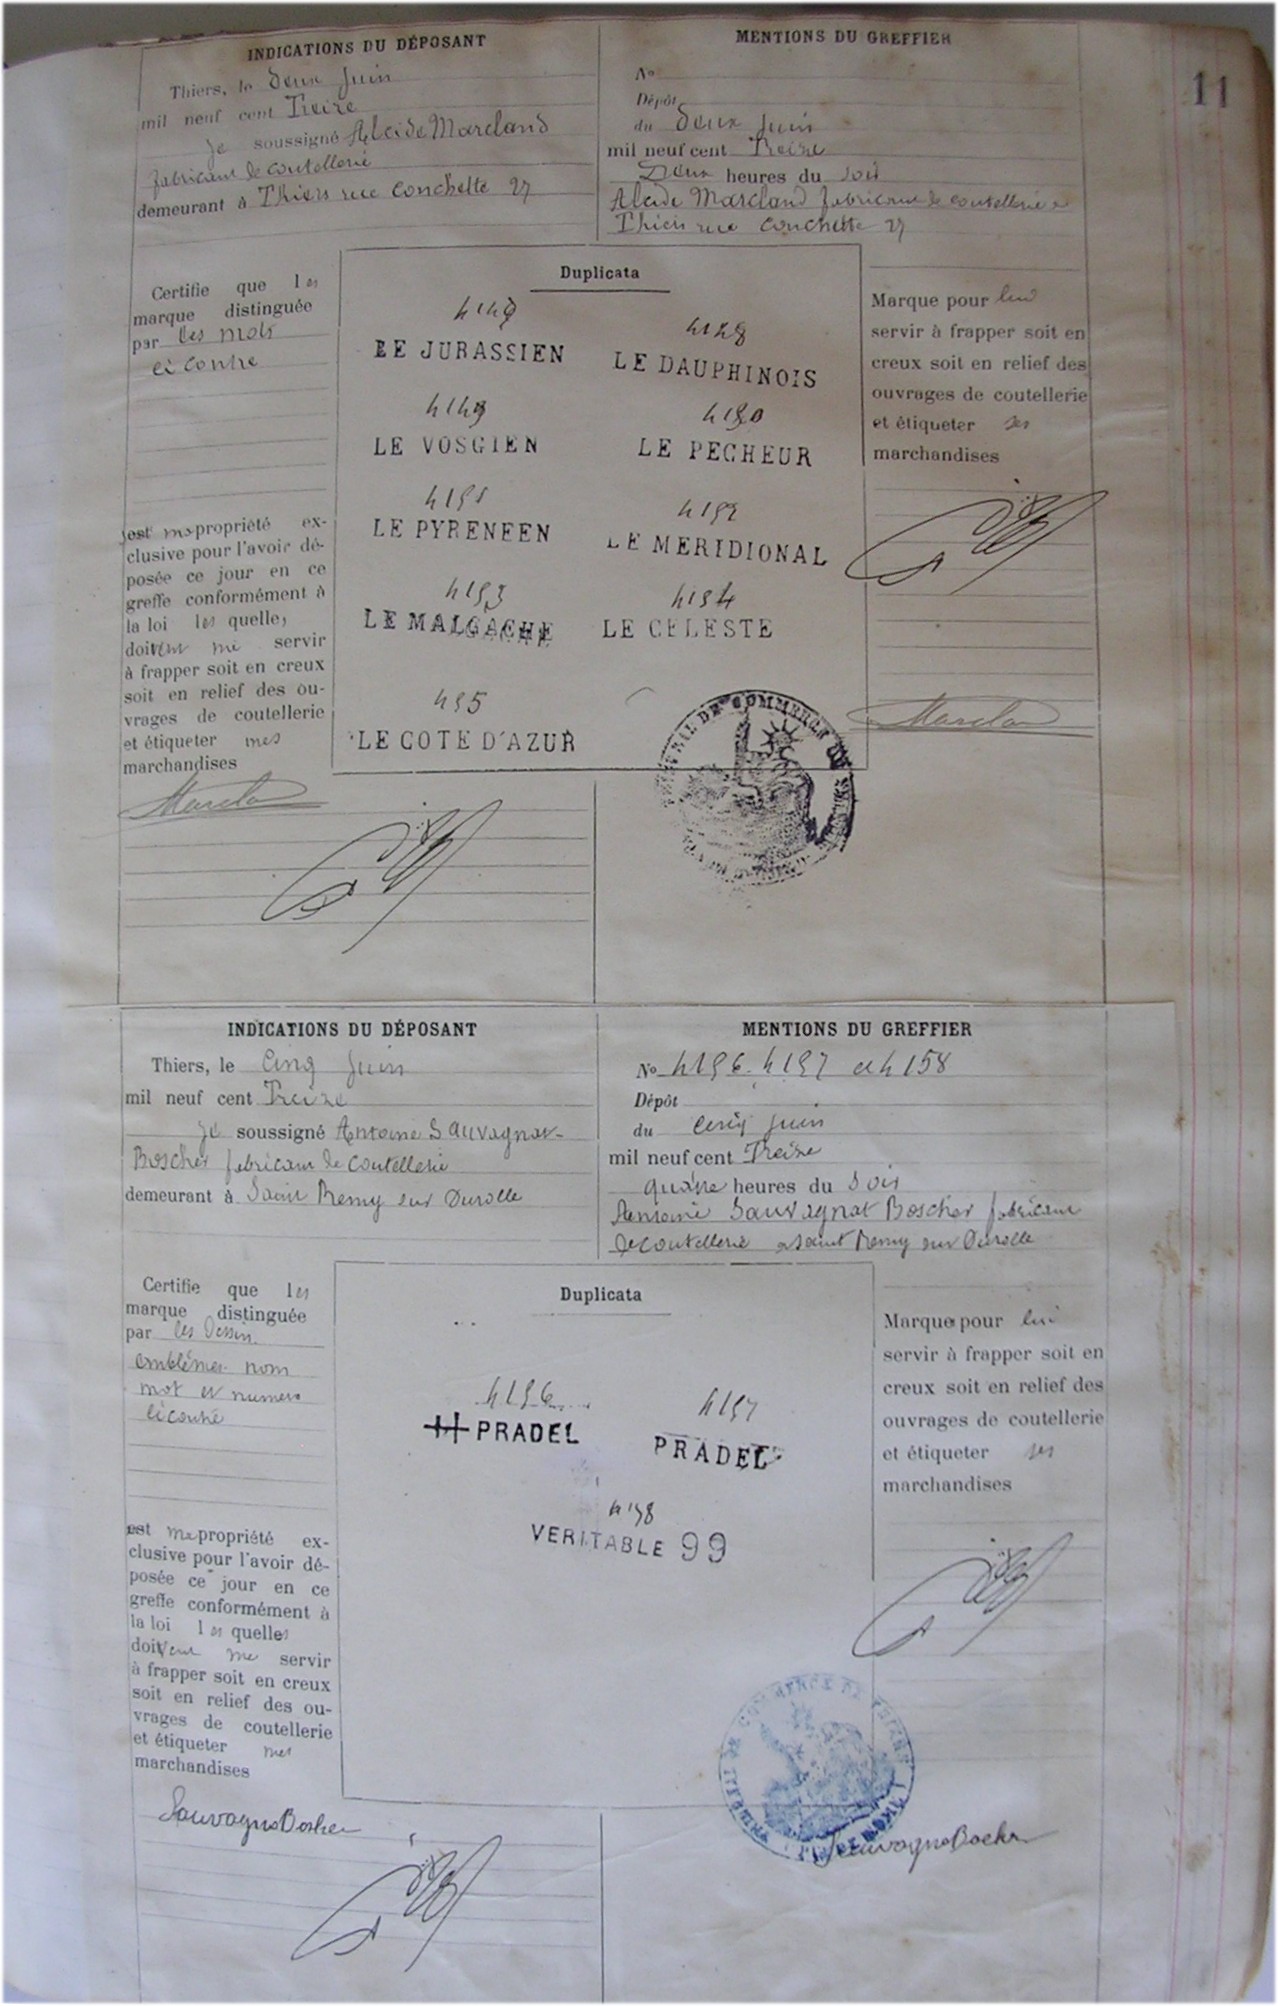 11
INDICATIONS DU DÉPOSANT
Thiers, le deux Juin
mil neuf cent Treize
Je soussigné Alcide Marcland
fabricant de coutellerie
demeurant à Thiers rue Conchette 27
MENTIONS DU GREFFIER
No
Dépôt
du deux juin
mil neuf cent Treize
Deux heures du soir
Alcide Marcland fabricant de coutellerie a
Thiers rue Conchette 27
Certifie que les
marque distinguée
par les mots
ci contre
est ma propriété ex-
clusive pour l'avoir dé-
posée ce jour en ce
greffe conformément à
la loi les quelles
doivent me servir
à frapper soit en creux
soit en relief des ou-
vrages de coutellerie
et étiqueter mes
marchandises
Duplicata
4148
LE JURASSIEN LE DAUPHINOIS
4149 4150
LE VOSGIEN LE PECHEUR
4151 4152
LE PYRENEEN LE MERIDIONAL
4153 4154
LE MALGACHE LE CELESTE
455
LE COTE D'AZUR
Marque pour lui
servir à frapper soit en
creux soit en relief des
ouvrages de coutellerie
et étiqueter ses
marchandises
INDICATIONS DU DÉPOSANT
Thiers, le Cinq Juin
mil neuf cent Treize
Je soussigné Antoine Sauvagnat-
Boscher fabricant de coutellerie
demeurant à Saint Remy sur Durolle
MENTIONS DU GREFFIER
No 4156. 4157 et 4158
Dépôt
du cinq juin
mil neuf cent Treize
quatre heures du soir
Antoine Sauvagnat Boscher fabricant
de coutellerie a Saint Remy sur Durolle
Certifie que les
marque distinguée
par les Dessin
emblémes nom
mot et numero
ci contre
est ma propriété ex-
clusive pour l'avoir dé-
posée ce jour en ce
greffe conformément à
la loi les quelles
doivent me servir
à frapper soit en creux
soit en relief des ou-
vrages de coutellerie
et étiqueter mes
marchandises
Duplicata
4156 4157
PRADEL PRADEL
4158
VERITABLE 99
Marque pour lui
servir à frapper soit en
creux soit en relief des
ouvrages de coutellerie
et étiqueter ses
marchandises